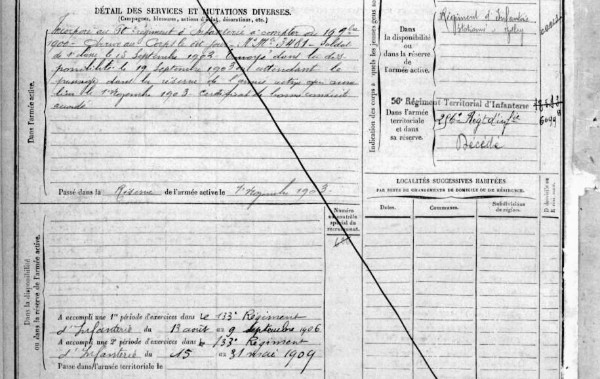 DÉTAIL DES SERVICES ET MUTATIONS DIVERSES.
(Campagnes, blessures, actions d'éclat, décorations, etc.)
Incorporé au régiment d'Infanterie à compter du
1900. Arrivé au Corps le dit jour. Nº Mle 3481. Soldat
de 2e classe le 15 Septembre 1902. Envoyé dans la dis-
ponibilité le 19 Septembre 1903 en attendant le
passage dans la réserve de l'armée active qui aura
lieu le 1er Novembre 1903. Certificat de bonne conduite
accordé.
Dans l'armée active.
Passé dans la Réserve de l'armée active le 1er Novembre 1903.
Numéro
au contrôle
spécial du
recrutement.
Dans la disponibilité
ou dans la réserve de l'armée active.
A accompli une 1re période d'exercices dans le 133e Régiment
d'Infanterie du 13 août au 9 septembre 1906
A accompli une 2e période d'exercices dans le 133e Régiment
d'Infanterie du 15 au 31 mai 1909
Passé dans l'armée territoriale le
Indication des corps auxquels les jeunes gens
Dans
la disponibilité
ou dans
la réserve
de l'armée
active.
Régiment d'Infanterie
stationné à Belley
50e Régiment Territorial d'Infanterie
Dans l'armée
territoriale
et dans
sa réserve.
256e Régt d'Infie
Décédé
6099
LOCALITÉS SUCCESSIVES HABITÉES
PAR SUITE DE CHANGEMENTS DE DOMICILE OU DE RÉSIDENCE.
Dates.
Communes.
Subdivisions
de région.
D domicile ou
R résidence.